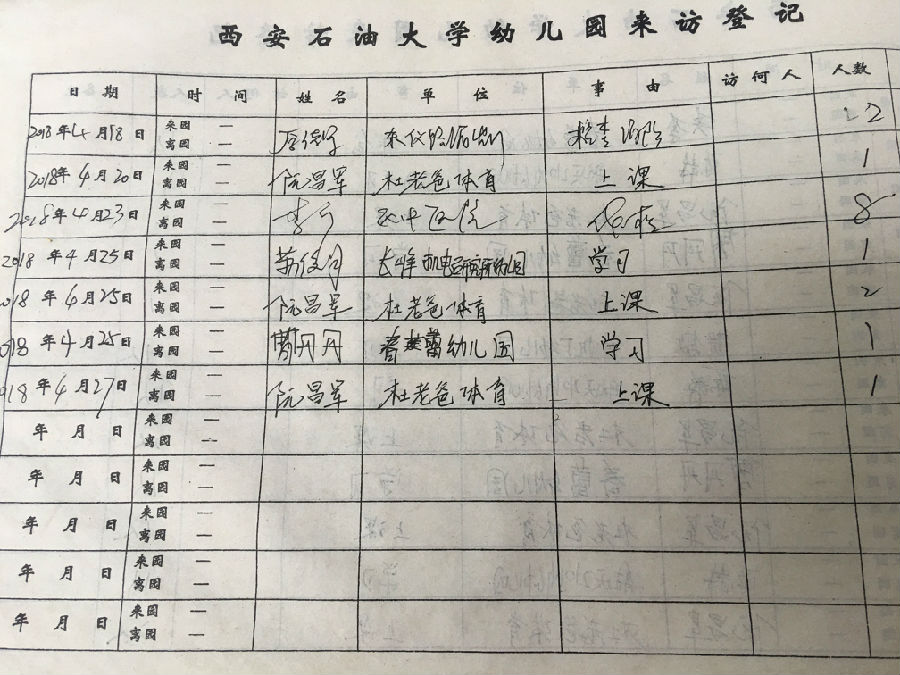 西安石油大学幼儿园来访登记
日期 时间 姓名 单位 事由 访何人 人数
2018年4月18日 来园 — 22
离园 —
2018年4月20日 来园 — 阮昌军 杜老爸体育 上课 1
离园 —
2018年4月23日 来园 — 8
离园 —
2018年4月25日 来园 — 学习 1
离园 —
018年4月25日 来园 — 阮昌军 杜老爸体育 上课 2
离园 —
018年4月25日 来园 — 曹丹丹 蓓蕾幼儿园 学习 1
离园 —
018年4月27日 来园 — 阮昌军 杜老爸体育 上课 1
离园 —
年 月 日 来园 —
离园 —
年 月 日 来园 —
离园 —
年 月 日 来园 —
离园 —
年 月 日 来园 —
离园 —
年 月 日 来园 —
离园 —